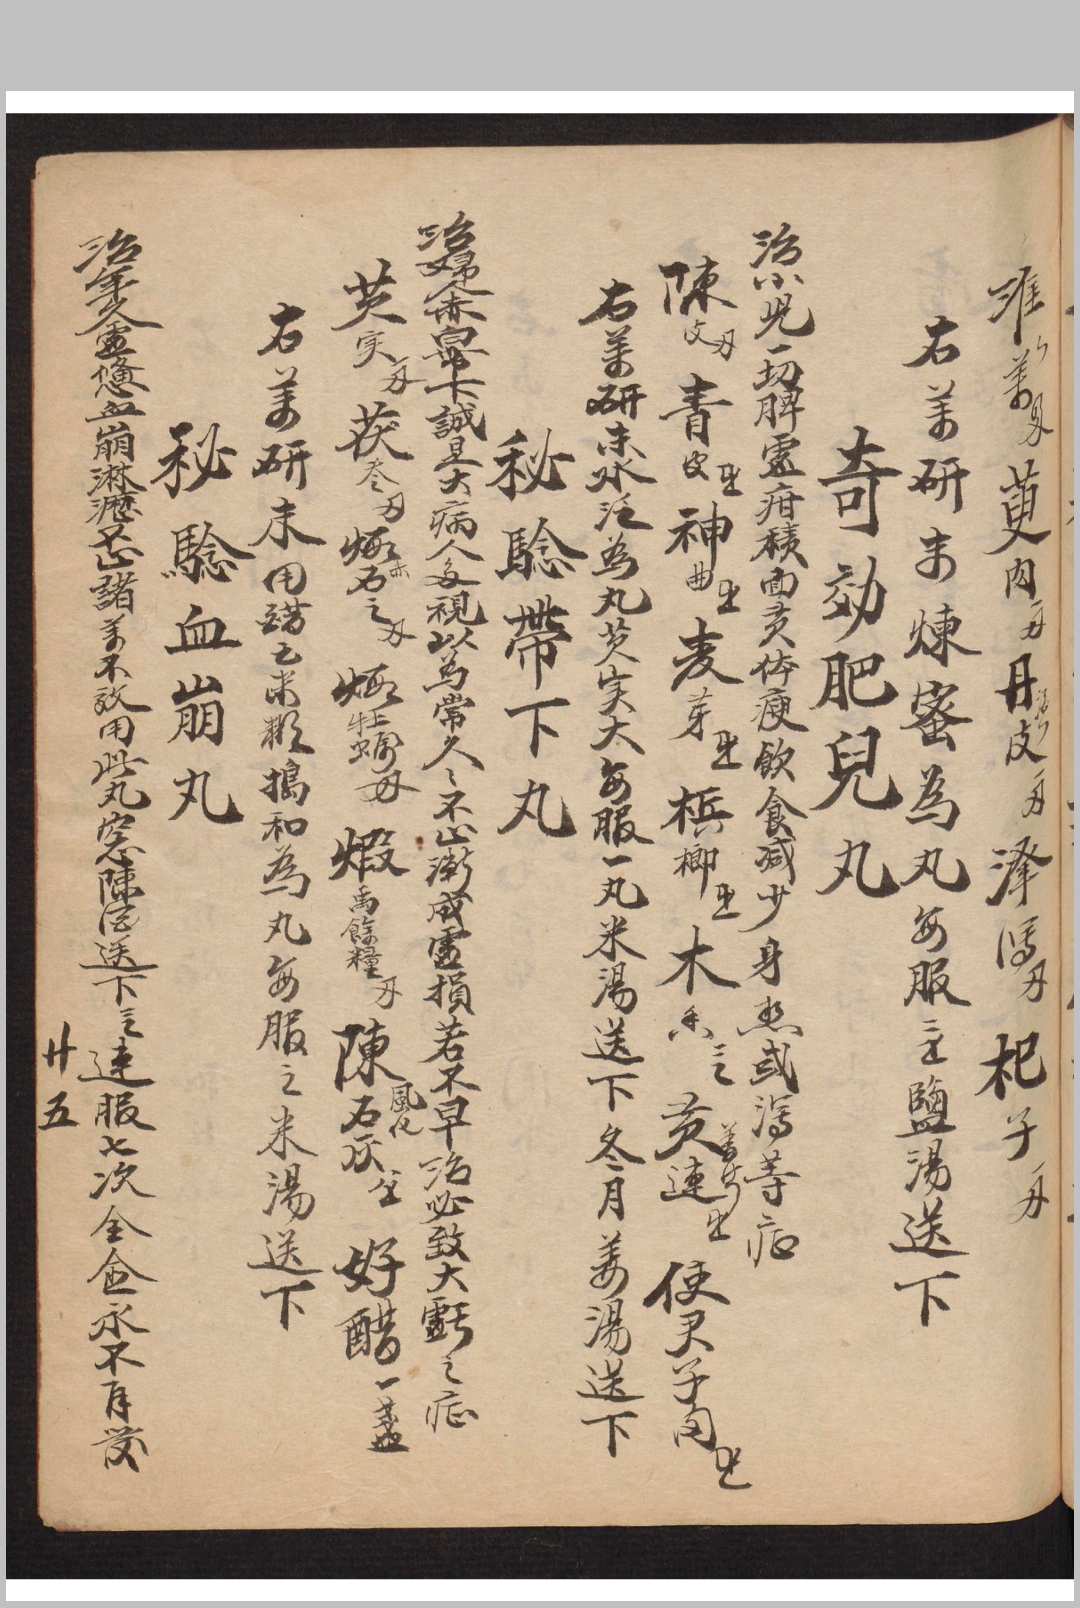 淮山药 萸肉 丹皮 泽泻 杞子
右药研末煉蜜為丸每服三 鹽湯送下
奇効肥兒丸
治小児一切脾虚疳積面黄体瘦飲食减少身热或瀉等症
陳皮 青皮 神曲 麦芽 梹榔 木香 黄連 使君子肉
右药研末水泛為丸芡实大每服一丸米湯送下冬月姜湯送下
秘驗帶下丸
治婦人赤白帶下誠是大病人多視以為常久之不止漸成虛損若不早治必致大虧之症
芡实 茯苓 煅赤石 煅牡蠣 煅禹餘糧 陳風化石灰 好醋一盞
右药研末用 米糊搗和為丸每服 米湯送下
秘驗血崩丸
治年久虛憊血崩淋瀝不止諸药不效用此丸 陳 送下三 連服七次全愈永不再發
廿五